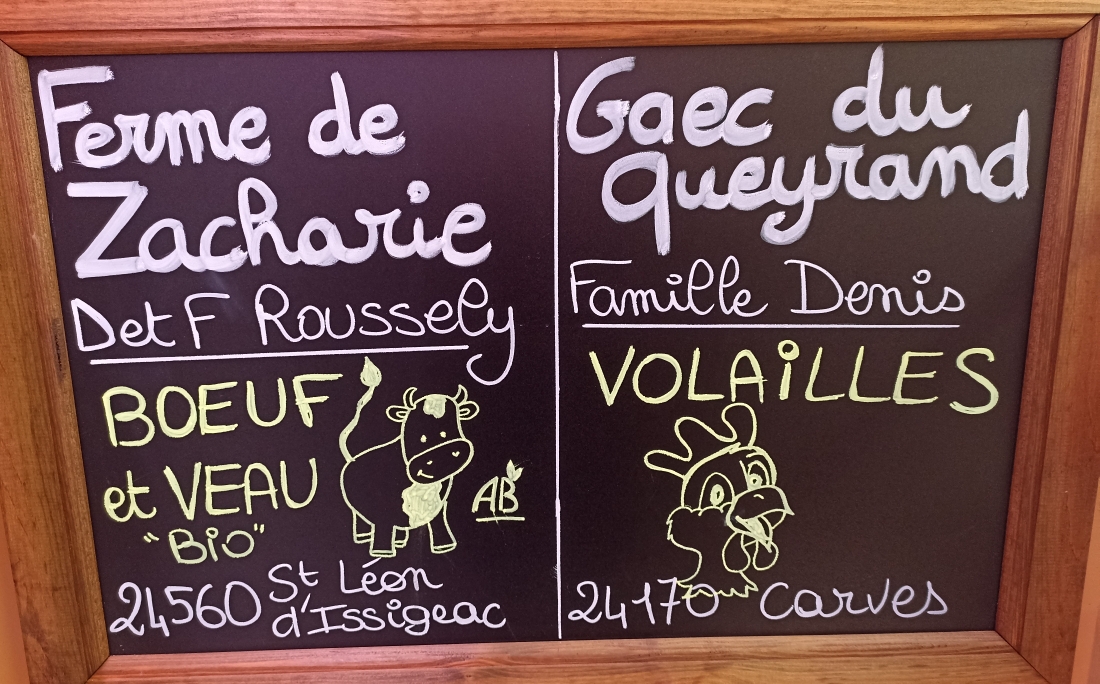 Ferme de
Zacharie
D et F Roussely
BOEUF
et VEAU
"Bio"
AB
24560 St Léon
d'Issigeac
Gaec du
Queyrand
Famille Denis
VOLAiLLES
24170 Carves